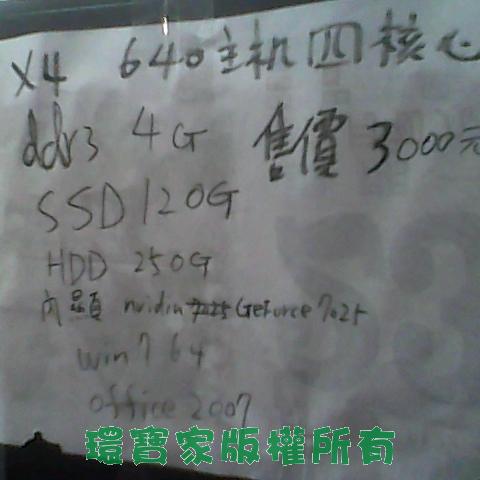 X4 640主机四核心
ddr3 4G 售價3000元
SSD120G
HDD 250G
內顯 nvidia 7025 Geforce 7025
win7 64
office 2007
環寶家版權所有